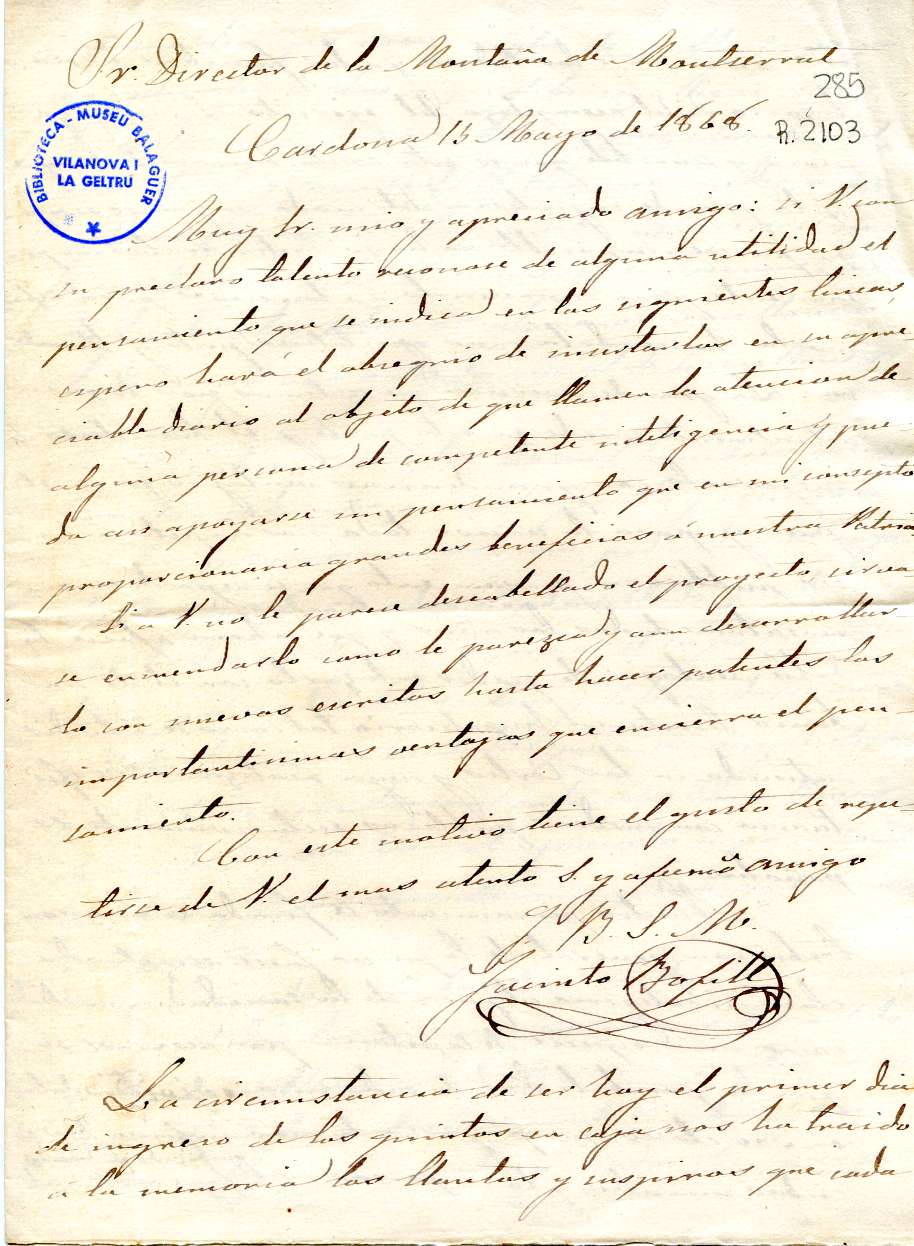 Sr. Director de la Montaña de Montserrat
285
Cardona 15 Mayo de 1868.
R. 2103
BIBLIOTECA - MUSEU BALAGUER
VILANOVA I
LA GELTRU
Muy Sr. mio y apreciado amigo: si V. con
su preclaro talento reconose de alguna utilidad el
pensamiento que se indica en las siguientes lineas,
espero hará el obsequio de insertarlas en su apre-
ciable diario al objeto de que llamen la atencion de
alguna persona de competente inteligencia y pue-
da asi apoyarse un pensamiento que en mi consepto
proporcionaria grandes beneficios á nuestra Patria.
Si a V. no le parese descabellado el proyecto, sirva-
se enmendarlo como le parezca y aun desarrollar-
lo con nuevos escritos hasta hacer patentes las
importantisimas ventajas que encierra el pen-
samiento.
Con este motivo tiene el gusto de repe-
tirse de V. el mas atento S. y afecmô amigo
Q B. S. M.
Jacinto Bofill
La circunstancia de ser hoy el primer dia
de ingreso de los quintos en caja nos ha traido
á la memoria los llantos y suspiros que cada